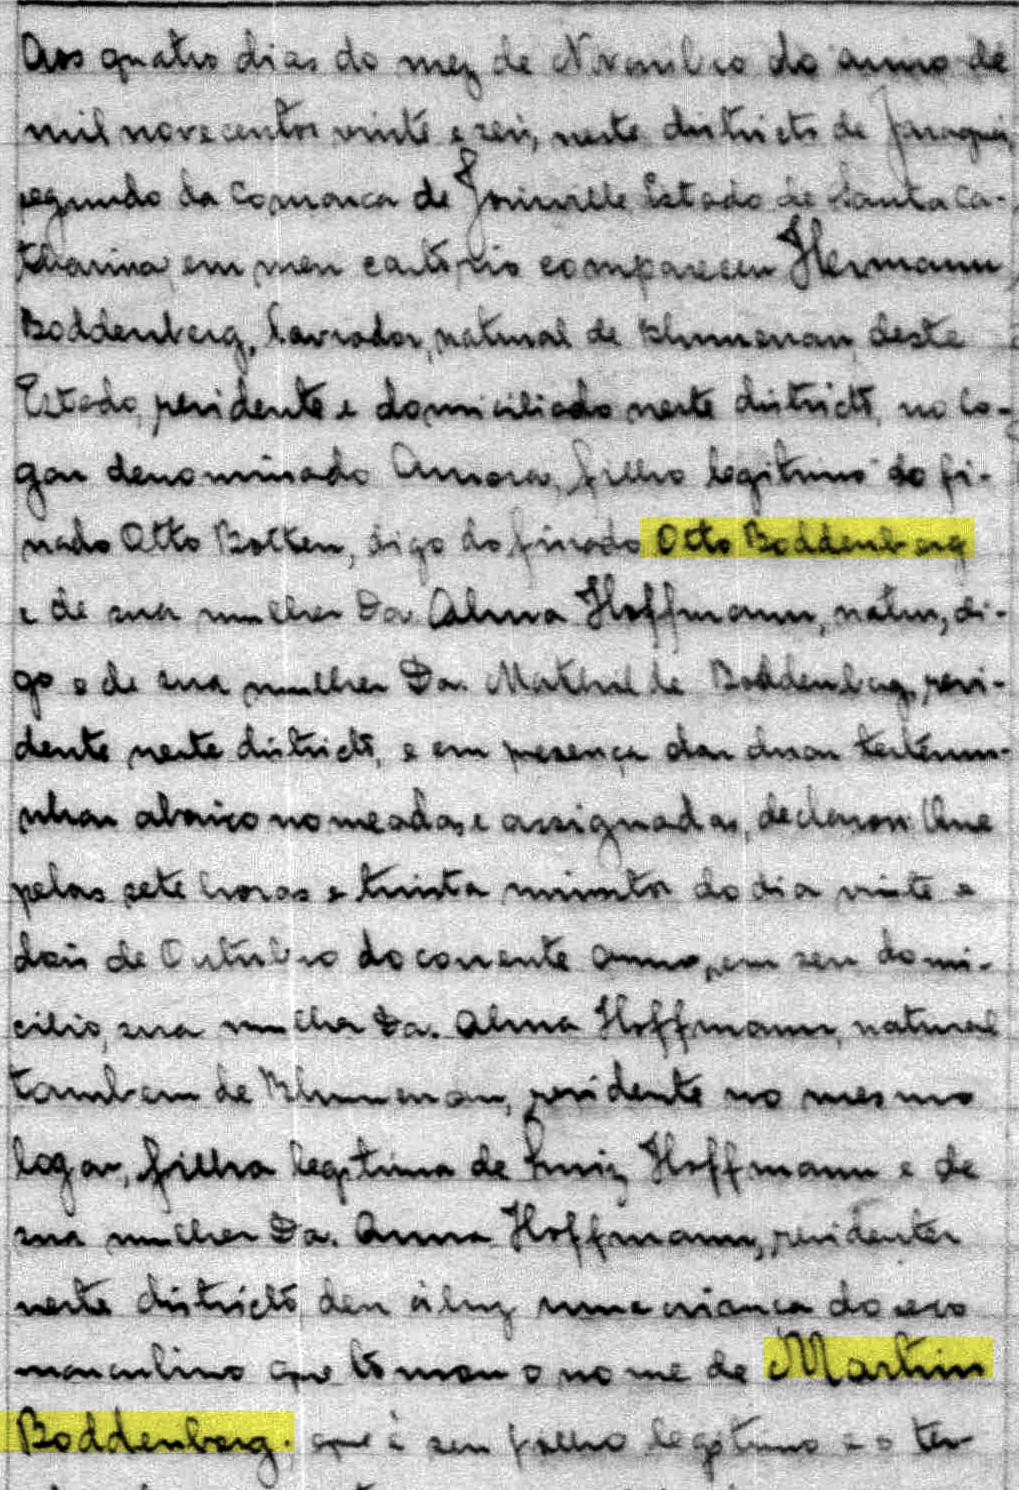 Aos quatro dias do mez de Novembro do anno de
mil novecentos vinte e seis, neste districto de Jaraguá,
segundo da Comarca de Joinville, Estado de Santa Ca-
tharina, em meu cartorio compareceu Hermann
Boddenberg, lavrador, natural de Blumenau, deste
Estado, residente e domiciliado neste districto, no lo-
gar denominado, filho legitimo do fi-
nado Otto Bolten, digo do finado Otto Boddenberg
e de sua mulher Da. Alma Hoffmann, natu, di-
go e de sua mulher Da. Mathilde Boddenberg, resi-
dente neste districto, e em presença das duas testemu-
nhas abaixo nomeadas e assignadas, declarou: Que
pelas sete horas e trinta minutos do dia vinte e
dois de Outubro do corrente anno, em seu domi-
cilio, sua mulher Da. Alma Hoffmann, natural
tambem de Blumenau, residente no mesmo
logar, filha legitima de Luiz Hoffmann e de
sua mulher Da. Anna Hoffmann, residentes
neste districto, deu à luz uma criança do sexo
masculino que tomou o nome de Martin
Boddenberg, que é seu filho legitimo e o ter-